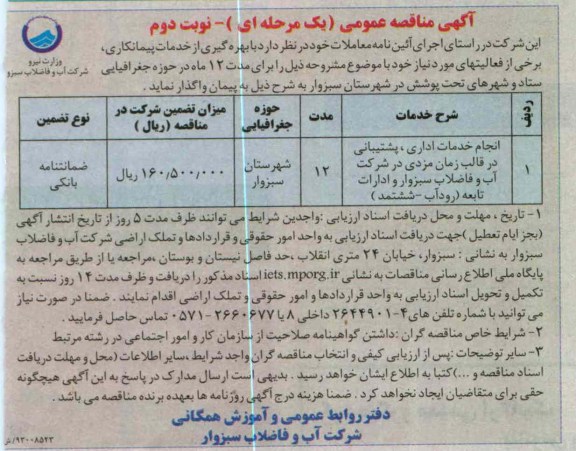 آگهی مناقصه عمومی (یک مرحله ای) - نوبت دوم
وزارت نیرو
شرکت آب و فاضلاب سبزوار
این شرکت در راستای اجرای آئین نامه معاملات خود در نظر دارد با بهره گیری از خدمات پیمانکاری،
برخی از فعالیتهای مورد نیاز خود با موضوع مشروحه ذیل را برای مدت ۱۲ ماه در حوزه جغرافیایی
ستاد و شهرهای تحت پوشش در شهرستان سبزوار به شرح ذیل به پیمان واگذار نماید.
ردیف
شرح خدمات
مدت
حوزه جغرافیایی
میزان تضمین شرکت در مناقصه (ریال)
نوع تضمین
۱
انجام خدمات اداری، پشتیبانی
در قالب زمان مزدی در شرکت
آب و فاضلاب سبزوار و ادارات
تابعه (رودآب - ششتمد)
۱۲
شهرستان سبزوار
۱۶۰/۵۰۰/۰۰۰ ریال
ضمانتنامه بانکی
۱- تاریخ، مهلت و محل دریافت اسناد ارزیابی: واجدین شرایط می توانند ظرف مدت ۵ روز از تاریخ انتشار آگهی
(بجز ایام تعطیل) جهت دریافت اسناد ارزیابی به واحد امور حقوقی و قراردادها و تملک اراضی شرکت آب و فاضلاب
سبزوار به نشانی: سبزوار، خیابان ۲۴ متری انقلاب، حد فاصل نیستان و بوستان، مراجعه یا از طریق مراجعه به
پایگاه ملی اطلاع رسانی مناقصات به نشانی iets.mporg.ir اسناد مذکور را دریافت و ظرف مدت ۱۴ روز نسبت به
تکمیل و تحویل اسناد ارزیابی به واحد قراردادها و امور حقوقی و تملک اراضی اقدام نمایند. ضمنا در صورت نیاز
می توانید با شماره تلفن های ۴-۲۶۴۴۹۰۱ داخلی ۸ یا ۲۶۶۰۶۷۷-۰۵۷۱ تماس حاصل فرمایید.
۲- شرایط خاص مناقصه گران: داشتن گواهینامه صلاحیت از سازمان کار و امور اجتماعی در رشته مرتبط
۳- سایر توضیحات: پس از ارزیابی کیفی و انتخاب مناقصه گران واجد شرایط، سایر اطلاعات (محل و مهلت دریافت
اسناد مناقصه و ...) کتبا به اطلاع ایشان خواهد رسید. بدیهی است ارسال مدارک در پاسخ به این آگهی هیچگونه
حقی برای متقاضیان ایجاد نخواهد کرد. ضمنا هزینه درج آگهی روزنامه ها بعهده برنده مناقصه می باشد.
دفتر روابط عمومی و آموزش همگانی
شرکت آب و فاضلاب سبزوار